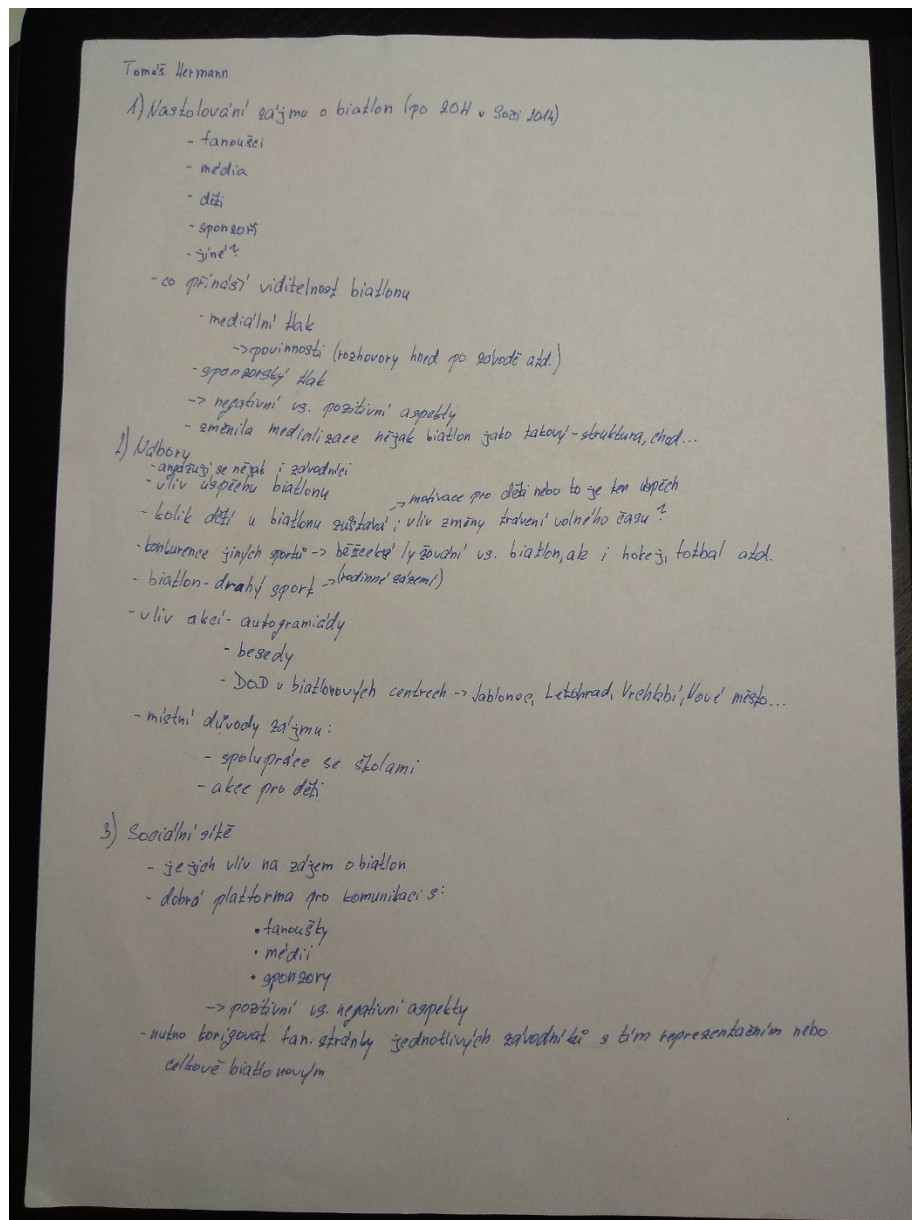 Tomáš Hermann
1) Nastolování zájmu o biatlon (po ZOH v Soči 2014)
- fanoušci
- média
- děti
- sponzoři
- jiné?
- co přináší viditelnost biatlonu
- mediální tlak
-> povinnosti (rozhovory hned po závodě atd.)
- sponzorský tlak
-> negativní vs. pozitivní aspekty
- změnila medializace nějak biatlon jako takový - struktura, chod...
2) Nábory
- angažují se nějak i závodníci
- vliv úspěchu biatlonu
-> motivace pro děti nebo to je ten úspěch
- kolik dětí u biatlonu zůstává; vliv změny trávení volného času?
- konkurence jiných sportů -> běžecké lyžování vs. biatlon, ale i hokej, fotbal atd.
- biatlon - drahý sport -> (rodinné zázemí)
- vliv akcí - autogramiády
- besedy
- DOD v biatlonových centrech -> Jablonec, Letohrad, Vrchlabí, Nové město...
- místní důvody zájmu:
- spolupráce se školami
- akce pro děti
3) Sociální sítě
- jejich vliv na zájem o biatlon
- dobrá platforma pro komunikaci s:
• fanoušky
• médii
• sponzory
-> pozitivní vs. negativní aspekty
- nutno korigovat fan. stránky jednotlivých závodníků s tím reprezentačním nebo
celkově biatlonovým